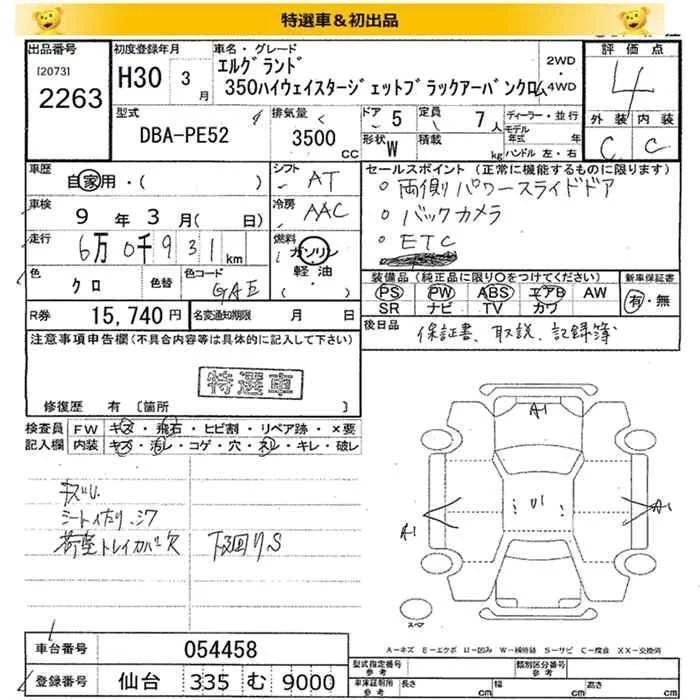 特選車＆初出品
出品番号
[2073]
2263
初度登録年月
H30 3月
車名・グレード
エルグランド
350ハイウェイスタージェットブラックアーバンクロム
2WD
・
4WD
評価点
4
外装 内装
C C
型式
DBA-PE52
排気量
3500
CC
ドア 5
形状 W
定員 7人
積載 kg
ディーラー・並行
モデル年式 年
ハンドル 左・右
車歴
自家用・( )
シフト
AT
セールスポイント (正常に機能するものに限ります)
○両側パワースライドドア
○バックカメラ
○ETC
車検
9年3月( 日)
冷房
AAC
走行
6万0千931km
燃料
ガソリン
軽油
( ・ )
色
クロ
色替
色コード
GAE
装備品 (純正品に限り○をつけてください)
PS PW ABS エアB AW
SR ナビ TV カワ
新車保証書
有・無
R券 15,740円
名変通知期限 月 日
後日品
保証書、取説、記録簿
注意事項申告欄 (不具合内容等は具体的に記入して下さい)
特選車
修復歴 有 [箇所 ]
検査員記入欄
FW キズ・飛石・ヒビ割・リペア跡・×要
内装 キズ・汚レ・コゲ・穴・ネレ・キレ・破レ
キズU
荷室トレイカバー欠
下回りS
A1
A1
A1
U1
スペア
A－キズ E－エクボ U－凹み W－補修跡 S－サビ C－腐食 XX－交換済
車台番号 054458
登録番号 仙台 335 む 9000
型式指定番号
参考
類別区分番号
参考
車庫証明用
参考
長さ cm
幅 cm
高さ cm